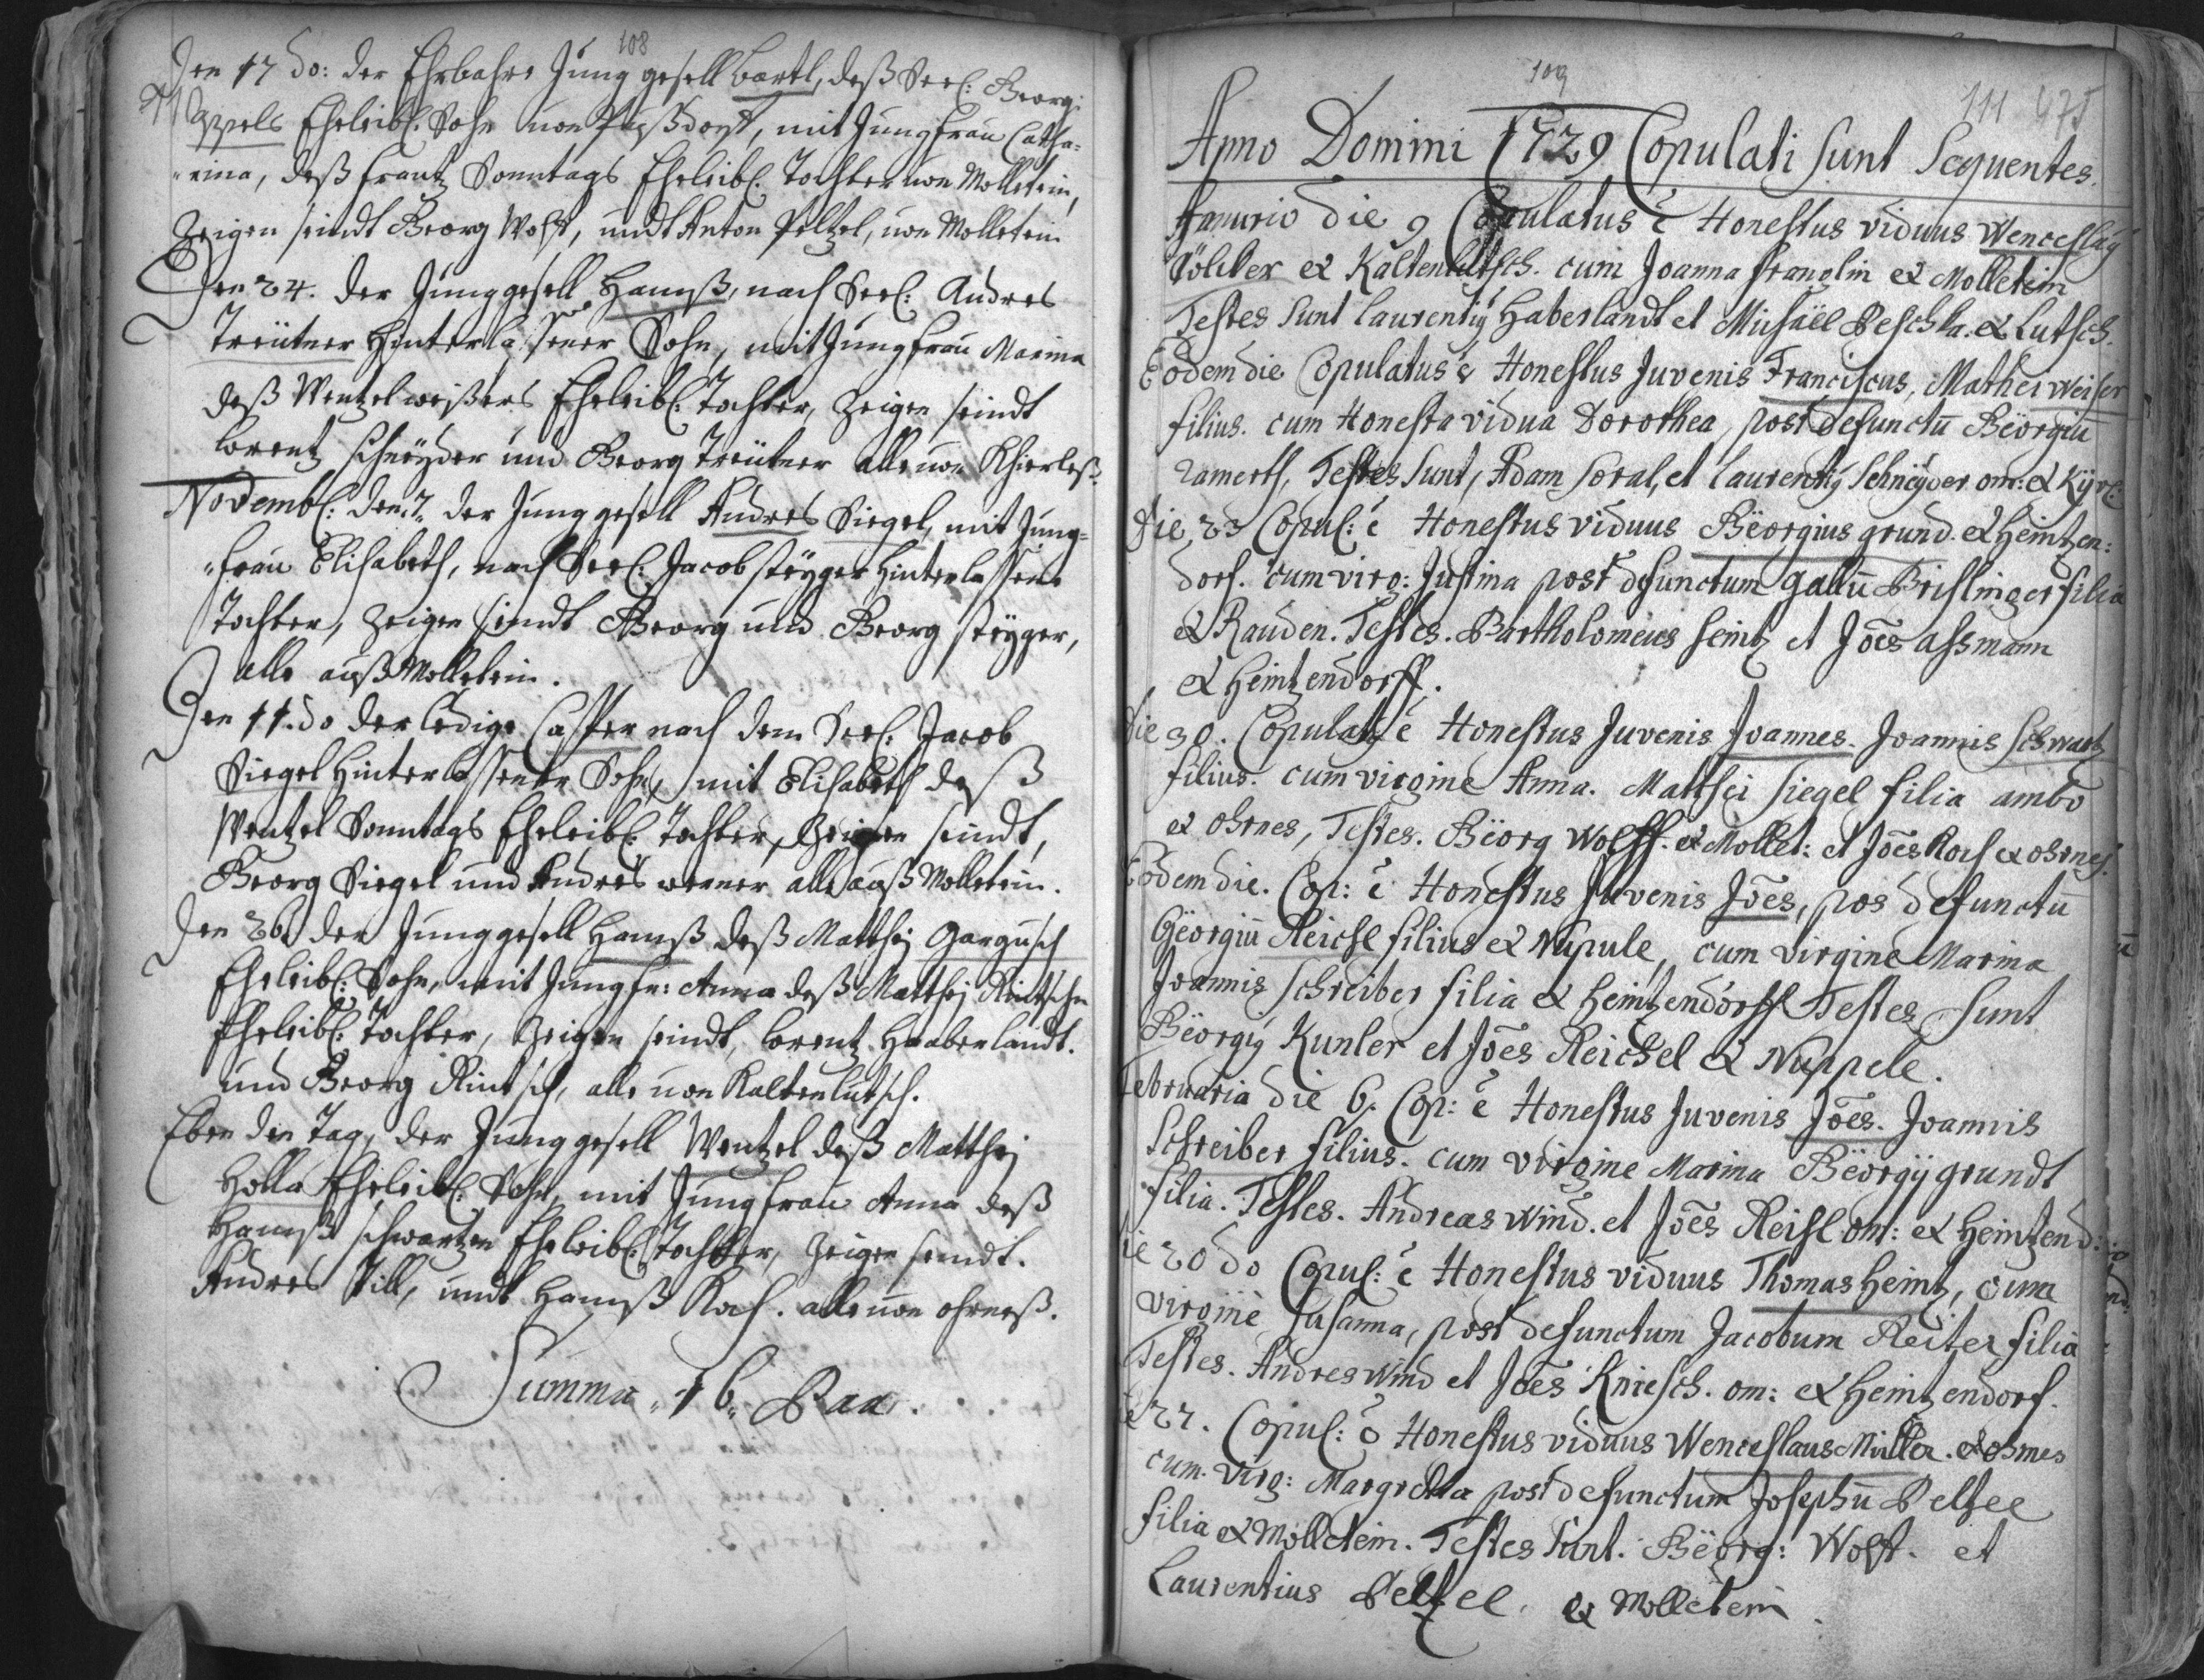 108
Den 17 do: der Ehrbahre Jung gesell Bartl, deß Seel: Georg:
Appels Eheleibl: Sohn von , mit Jungfrau Catha=
=rina, deß Frantz Sonntags Eheleibl: Tochter von Molletein,
Zeigen seindt Georg Wolff, undt Anton Peltzel, von Molletein
Den 24. der Jung gesell Hannß, nach Seel: Andres
Treütner Hinterlassener Sohn, mit Jungfrau Marina
deß Wentzel weißers Eheleibl: Tochter, Zeigen seindt
Lorentz schneÿder und Georg Treütner alle von
Novemb: den 7. der Jung gesell Andres Siegel, mit Jung=
=frau Elisabeth, nach Seel: Jacob steÿger Hinterlassene
Tochter, Zeigen seindt Georg und Georg steÿger,
alle auß Molletein.
Den 11. do der ledige Casper nach dem Seel: Jacob
Siegel Hinterlassener Sohn, mit Elisabeth deß
Wentzel Sonntags Eheleibl: Tochter, Zeigen seindt,
Georg Siegel und Andres werner alle auß Molletein.
Den 26. der Jung gesell Hannß deß Matthej Gargusch
Eheleibl: Sohn, mit Jungfr: Anna deß Matthej Rintschn
Eheleibl: Tochter, Zeigen seindt, Lorentz Haaberlandt.
und Georg Rintsch, alle von Kaltenlutsch.
Eben den Tag, der Jung gesell Wentzel deß Matthej
Holla Eheleibl: Sohn, mit Jungfrau Anna deß
Hannß schwartzen Eheleibl: Tochter, Zeigen seindt.
Andres Till, undt Hannß Koch. alle von ohrneß.
Summa 16 Paa.
109
111 475
Anno Domini 1729 Copulati sunt Sequentes.
Januario die 9 Copulatus ē Honestus viduus Wenceslaÿ
ex Kaltenlutsch. cum Joanna ex Molletein
Testes sunt Laurentiÿ Haberlandt et Michäel Peschka. ex Lutsch.
Eodem die Copulatus ē Honestus Juvenis Franciscus, Mathei Weiser
filius. cum Honesta vidua Dorothea, post defunctū Gëorgiū
Ramerth, Testes sunt, Adam Soral, et Laurentiÿ Schneÿder om: ex Kÿrl:
die 23 Copul: ē Honestus viduus Gëorgius grund. ex Heintzen:
dorf. cum virg: Justina post defunctum Gallū Brislinger filia
ex Rauden. Testes. Bartholomeus Heintz et Jōes assmann
ex Heintzendorff.
die 30. Copulatÿ ē Honestus Juvenis Joannes. Joannis Schwartz
filius. cum virgine Anna. Matthei Siegel filia ambo
ex ohrnes, Testes. Gëorg Wolff. ex Mollet: et Jōes Koch ex ohrnes.
Eodem die. Cop: ē Honestus Juvenis Jōes, pos defunctū
Gëorgiū Reichl filius ex Nupule, cum virgine Marina
Joannis Schreiber filia ex Heintzendorff Testes sunt
Gëorgiÿ Kunler et Jōes Reichel ex Nuppele.
Februaria die 6. Cop: ē Honestus Juvenis Jōes. Joannis
Schreiber filius. cum virgine Marina Gëorgÿ grundt
filia. Testes. Andreas Wind. et Jōes Reisl om: ex Heintzend:
die 20 do Copul: ē Honestus viduus Thomas Heintz, cum
virgine Susanna, post defunctum Jacobum Reiter filia
Testes. Andres Wind et Jōes Kniesch. om: ex Heintzendorf.
27. Copul: ē Honestus viduus Wenceslaus Müller. ex ohrnes
cum virg: Margretta post defunctum Josephū Peltzel
filia ex Molletein. Testes sunt. Gëorg: Wolff. et
Laurentius Peltzel. ex Molletein